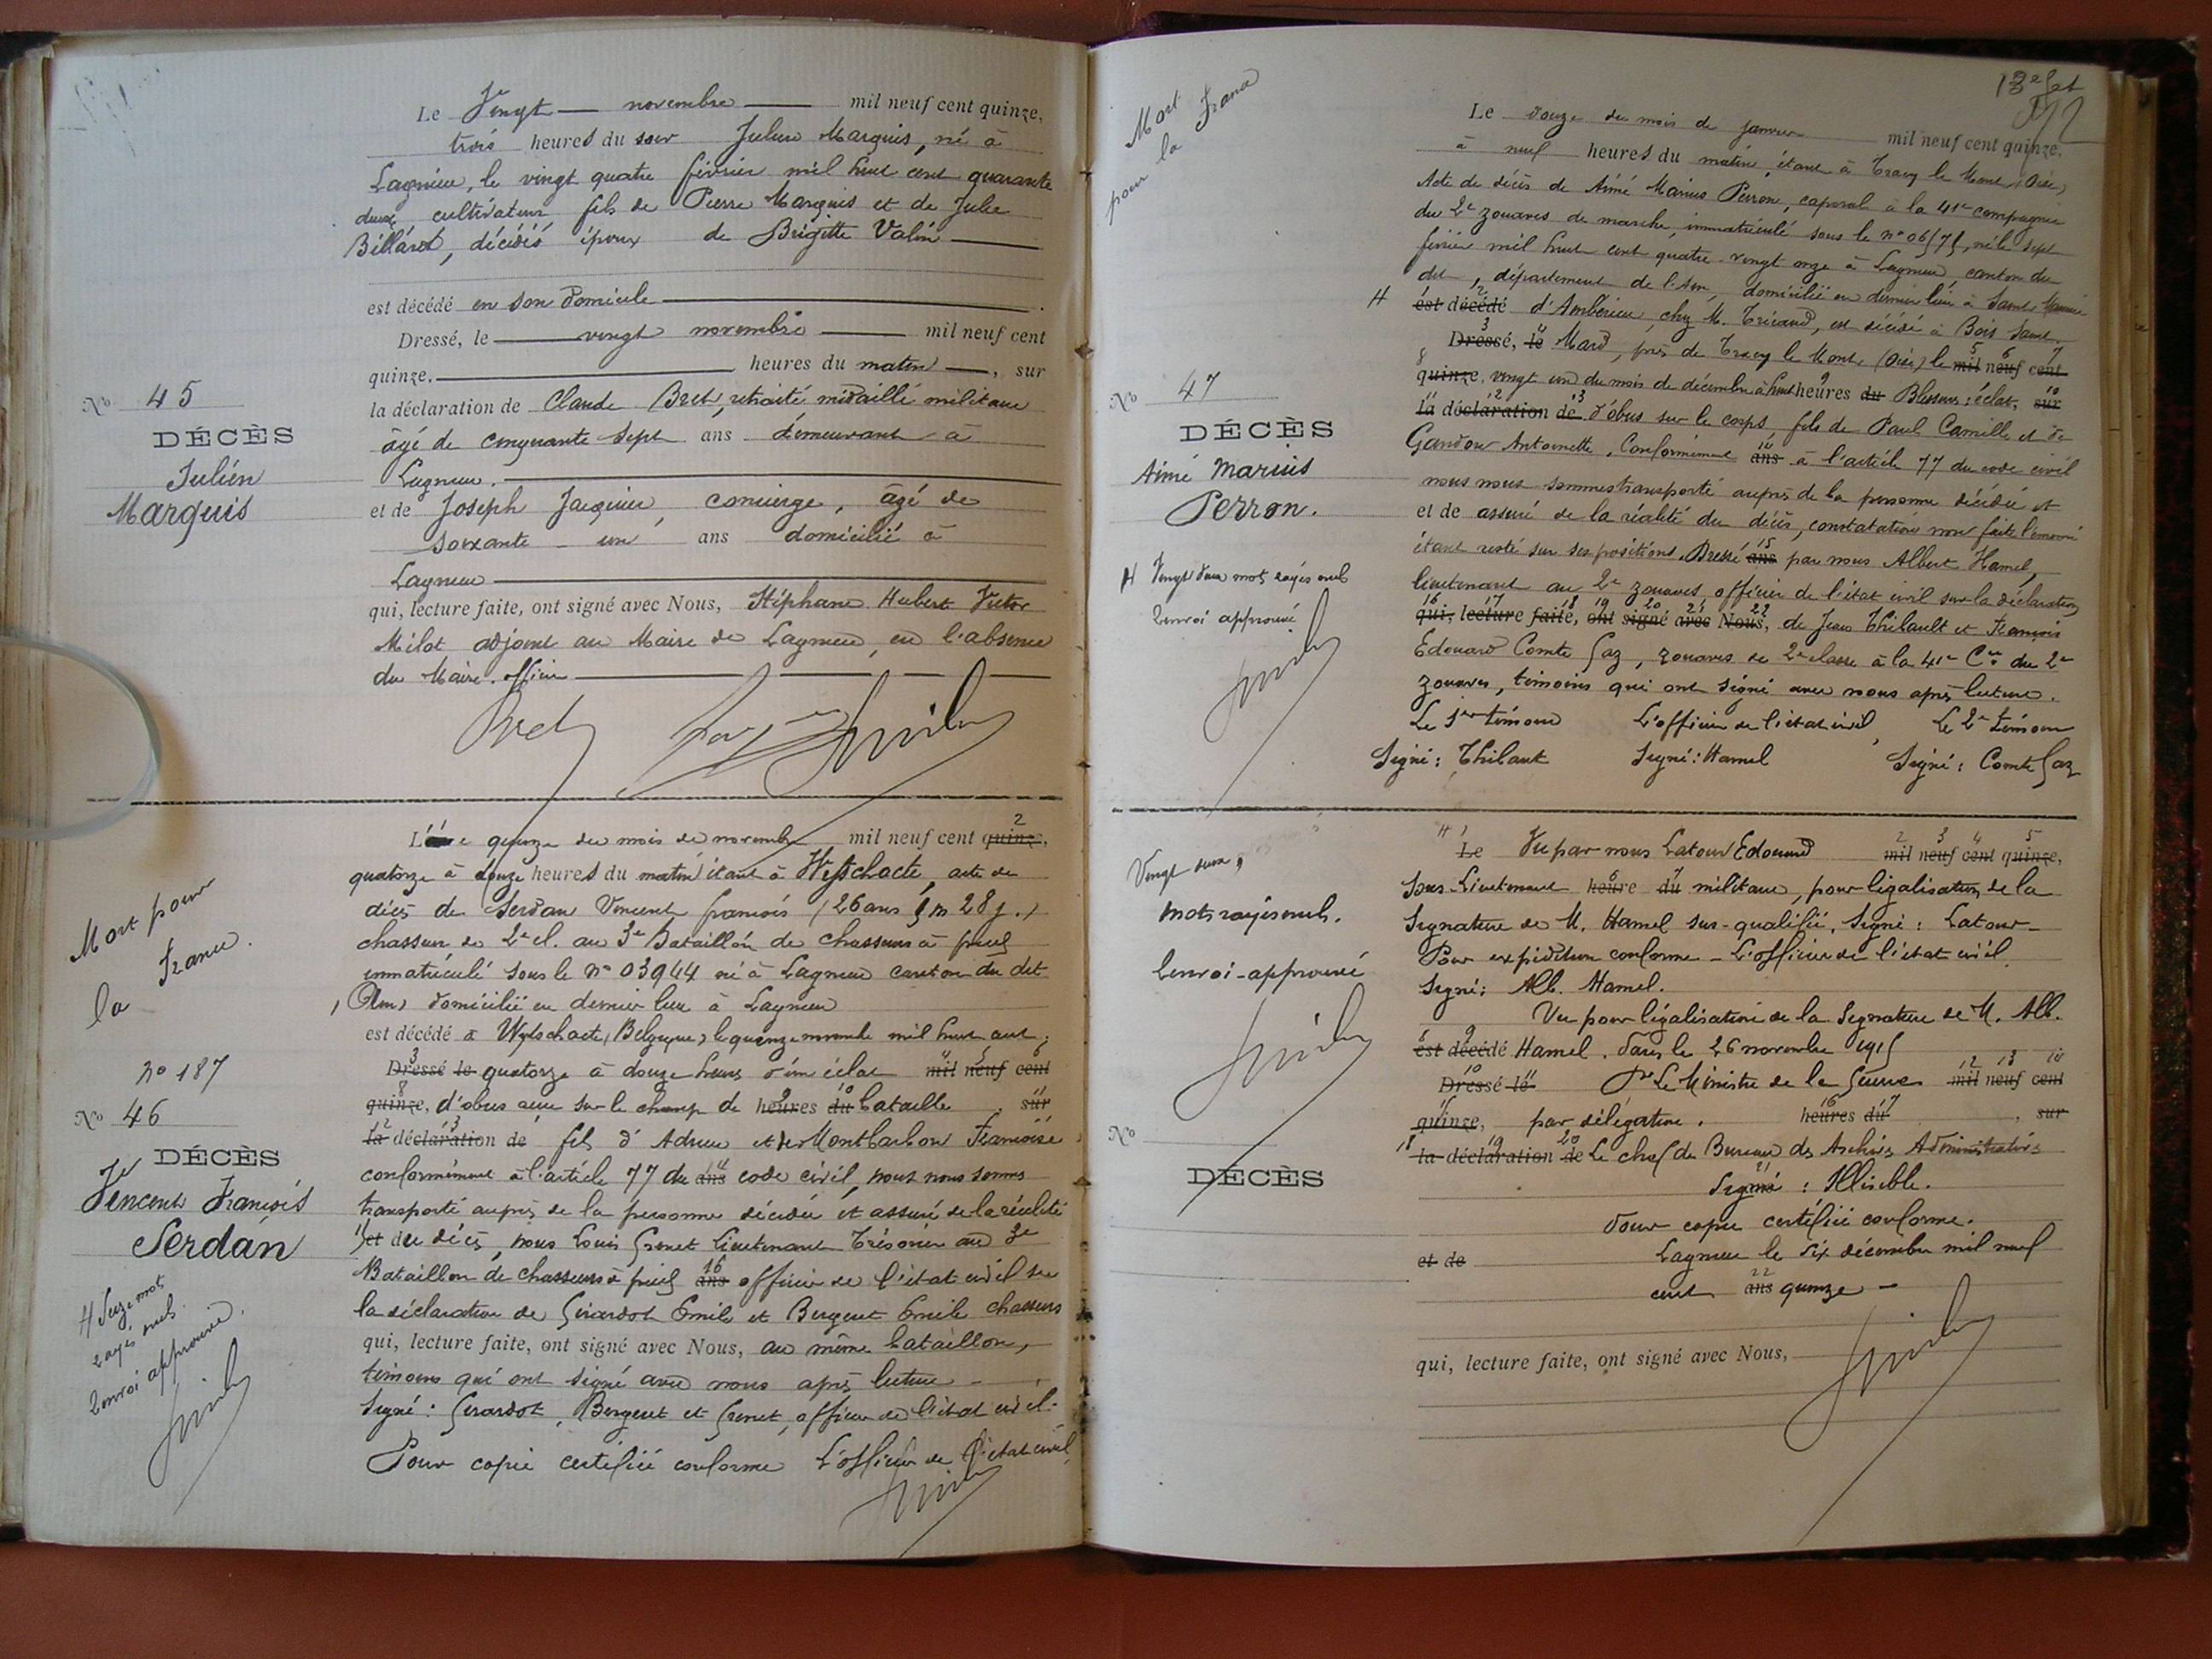 Le Vingt novembre mil neuf cent quinze,
trois heures du soir Julien Marquis, né à
Lagnieu, le vingt quatre février mil huit cent quarante
deux, cultivateur fils de Pierre Marquis et de Julie
Billard, décédés époux de Brigitte Valin
est décédé en son domicile
Dressé, le vingt novembre mil neuf cent
quinze, heures du matin, sur
la déclaration de Claude Bret, retraité médaillé militaire
âgé de cinquante sept ans demeurant à
Lagnieu.
et de Joseph Jacquier, concierge, âgé de
soixante un ans domicilié à
Lagnieu
qui, lecture faite, ont signé avec Nous, Stéphane Hubert Victor
Milot adjoint au Maire de Lagnieu, en l'absence
du Maire. officier
Bret
No 45
DÉCÈS
Julien
Marquis
Le quinze du mois de novembre mil neuf cent quinze,
quatorze à douze heures du matin étant à Wytschaete, acte de
décès de Serdan Vincent françois (26 ans 9 m 28 j.)
chasseur de 2e cl. au 3e Bataillon de chasseurs à pied
immatriculé sous le no 03944 né à Lagnieu canton du dit
(Ain) domicilié en dernier lieu à Lagnieu
est décédé à Wytschaete (Belgique) le quinze novembre mil neuf cent
Dressé le quatorze à douze heures d'un éclat mil neuf cent
quinze, d'obus reçu sur le champ de heures du bataille sur
la déclaration de fils d'Adrien et de Montbarbon Françoise
conformément à l'article 77 du ans code civil, nous nous sommes
transporté auprès de la personne décédée et assuré de la réalité
et du décès, nous Louis Grenet lieutenant Trésorier au 3e
Bataillon de chasseurs à pied ans officier de l'état civil sur
la déclaration de Girardot Emile et Bergeret Emile chasseurs
qui, lecture faite, ont signé avec Nous, au même bataillon,
témoins qui ont signé avec nous après lecture
Signé : Girardot, Bergeret et Grenet, officier de l'état civil.
Pour copie certifiée conforme L'officier de l'état civil
Mort pour
la France.
No 187
No 46
DÉCÈS
Vincent François
Serdan
H Seize mots
rayés nuls.
Renvoi approuvé.
13e fet
Mort
pour la France
Le douze du mois de janvier mil neuf cent quinze,
à neuf heures du matin, étant à Tracy le Mont (Oise)
Acte de décès de Aimé Marius Perron, caporal à la 41e compagnie
du 2e zouaves de marche, immatriculé sous le no 06575, né le sept
février mil huit cent quatre vingt onze à Lagnieu canton du
dit, département de l'Ain, domicilié en dernier lieu à Saint Maurice
H est décédé d'Ambérieu chez M. Tricaud, est décédé à Bois Saint
Dressé, le Mard, près de Tracy le Mont, (Oise) le mil neuf cent
quinze, vingt un du mois de décembre à huit heures du Blessures : éclat, sur
la déclaration de d'obus sur le corps, fils de Paul Camille et de
Gandou Antoinette. Conformément ans à l'article 77 du code civil
nous nous sommes transporté auprès de la personne décédée et
et de assuré de la réalité du décès, constatation non faite l'ennemi
étant resté sur ses positions. Dressé ans par nous Albert Hamel,
lieutenant au 2e zouaves officier de l'état civil sur la déclaration
qui, lecture faite, ont signé avec Nous, de Jean Thibault et François
Edouard Comte Gaz, zouaves de 2e classe à la 41e Cie du 2e
zouaves, témoins qui ont signé avec nous après lecture.
Le 1er témoin L'officier de l'état civil, Le 2e témoin
Signé : Thibaut Signé : Hamel Signé : Comte Gaz
No 47
DÉCÈS
Aimé Marius
Perron.
H Vingt deux mots rayés nuls
Renvoi approuvé
Le Vu par nous Latour Edouard mil neuf cent quinze,
Sous-Lieutenant heure du militaire, pour légalisation de la
Signature de M. Hamel sus-qualifié, Signé : Latour
Pour expédition conforme L'officier de l'état civil
Signé : Alb. Hamel.
Vu pour légalisation de la Signature de M. Alb.
est décédé Hamel. Paris le 26 novembre 1915
Dressé le Pr Le Ministre de la Guerre mil neuf cent
quinze, par délégation. heures du, sur
la déclaration de Le chef du Bureau des Archives Administratives
Signé : Illisible.
Pour copie certifiée conforme.
et de Lagnieu le Six décembre mil neuf
cent ans quinze
qui, lecture faite, ont signé avec Nous,
Vingt deux
mots rayés nuls.
Renvoi approuvé
No
DÉCÈS